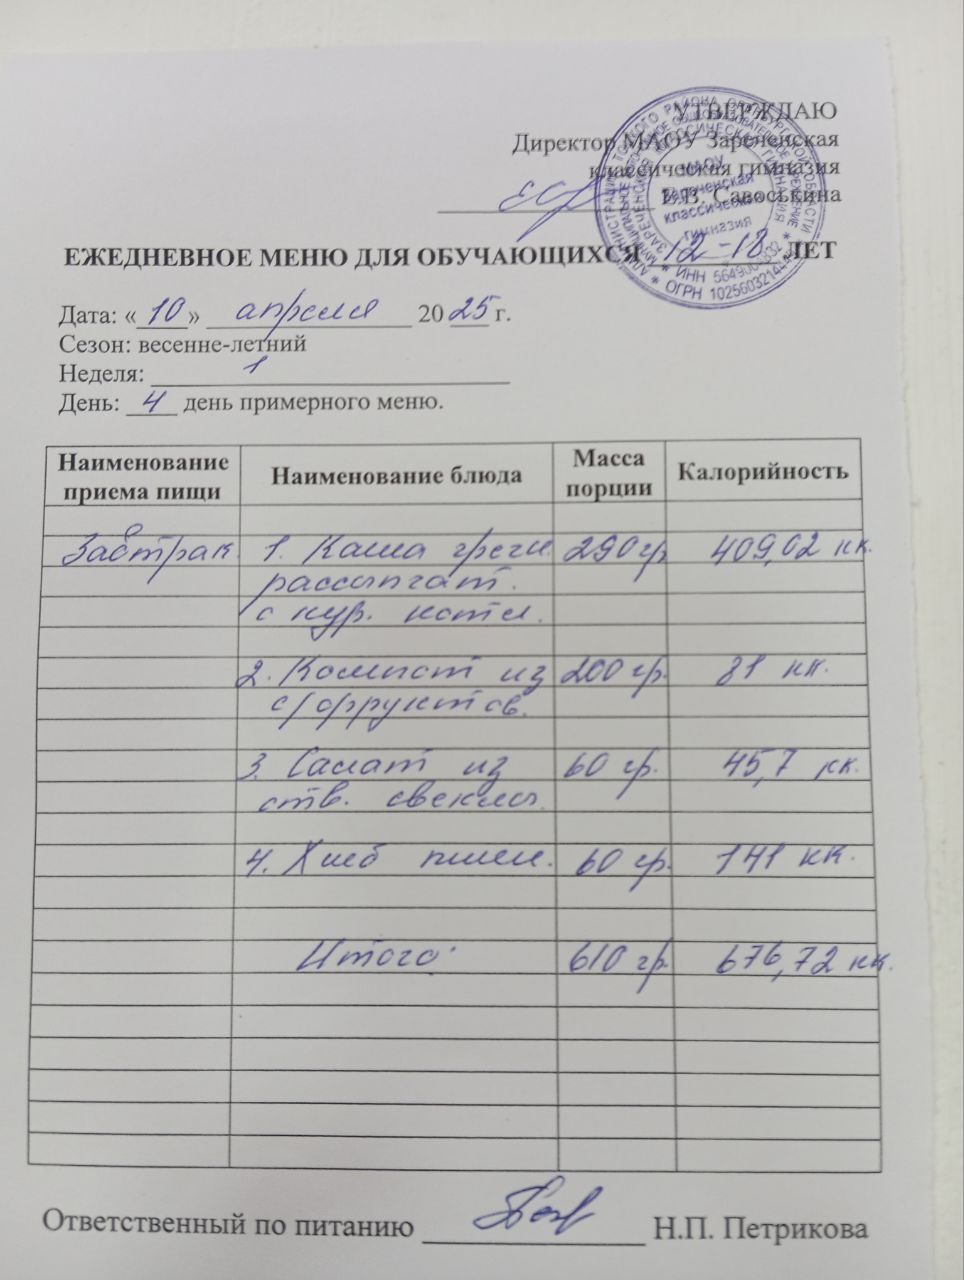 УТВЕРЖДАЮ
Директор МАОУ Зареченская
классическая гимназия
Е.В. Савоськина
МАОУ
Зареченская
классическая
гимназия
ЕЖЕДНЕВНОЕ МЕНЮ ДЛЯ ОБУЧАЮЩИХСЯ 12-18 ЛЕТ
Дата: «10» апреля 2025 г.
Сезон: весенне-летний
Неделя: 1
День: 4 день примерного меню.
Наименование приема пищи Наименование блюда Масса порции Калорийность
Завтрак 1. Каша гречн. 290 гр 409,02 кк.
рассыпчат.
с кур. котл.
2. Компот из 200 гр. 81 кк.
с/фруктов.
3. Салат из 60 гр. 45,7 кк.
отв. свеклы.
4. Хлеб пшен. 60 гр. 141 кк.
Итого: 610 гр. 676,72 кк.
Ответственный по питанию Н.П. Петрикова